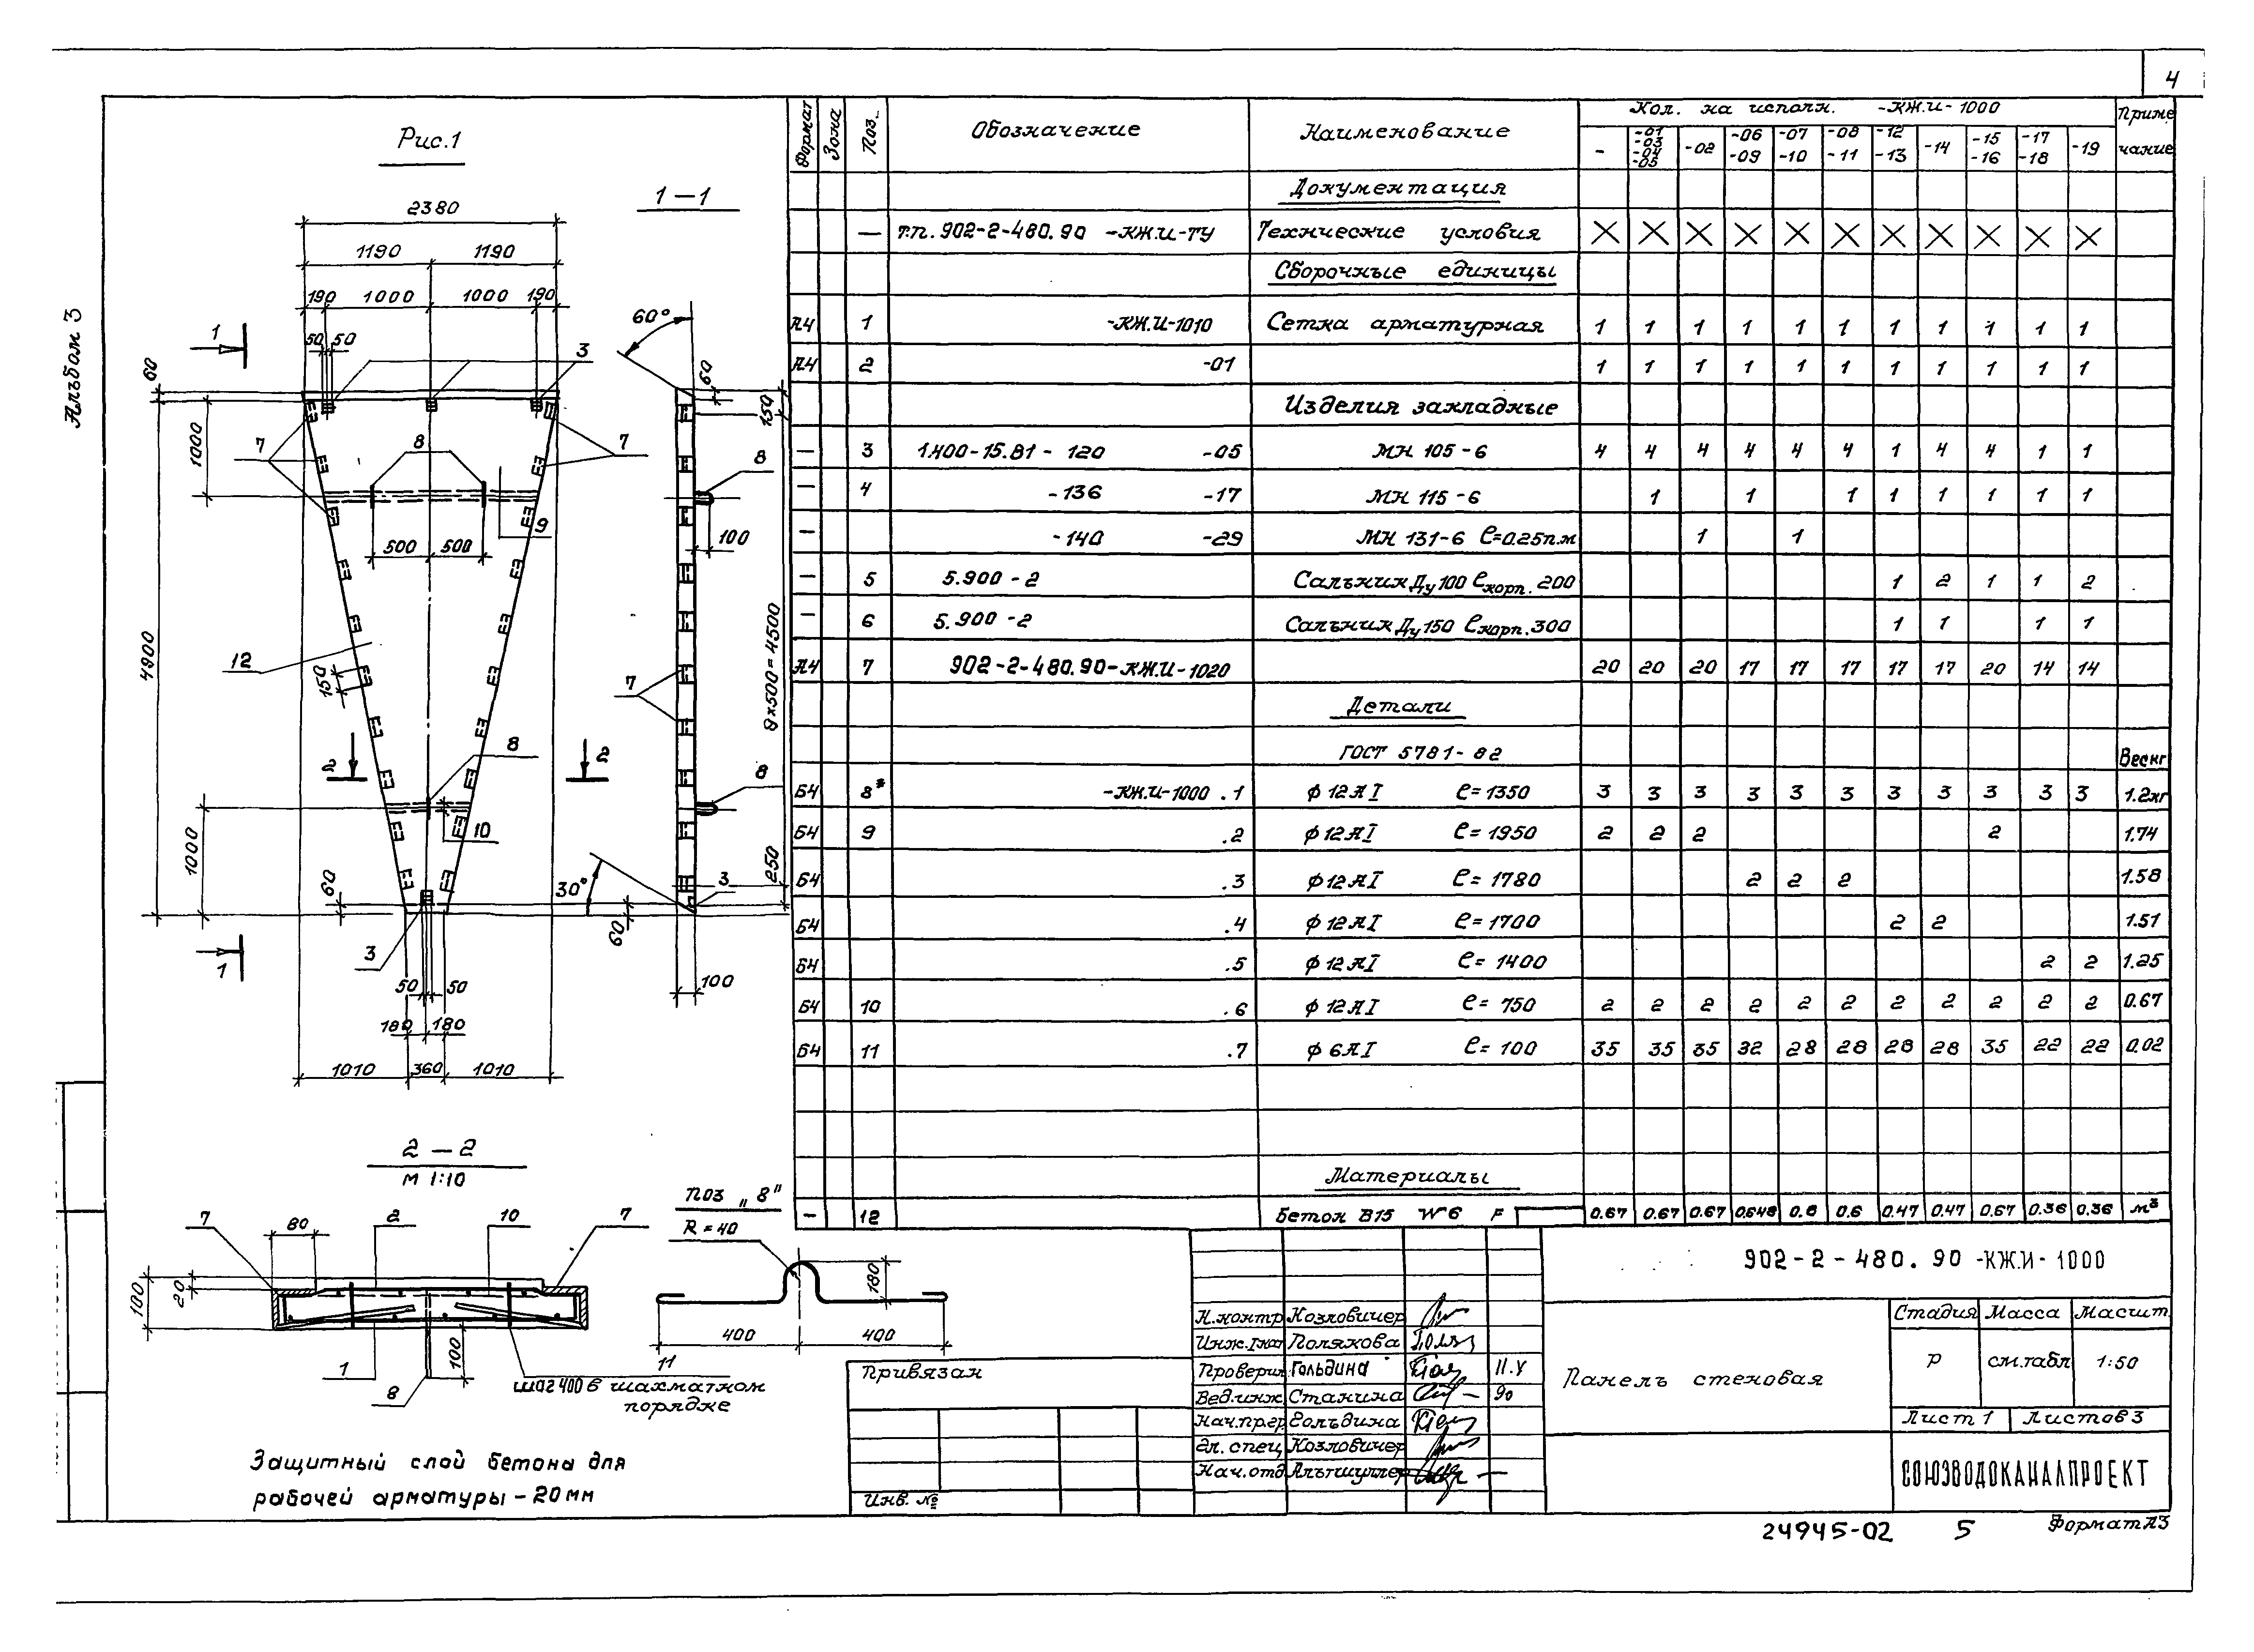 4
Альбом 3
Рис.1
1-1
2380
1190 1190
190 1000 1000 190
50 50
3
1
60
1000
7
8
7
9
500 500
4900
12
150
8
2
2
10
1000
60
3
1
50 50
180 180
1010 360 1010
60°
60
150
8
100
7
9×500=4500
8
250
30°
3
60
100
2-2
М 1:10
7
80
2
10
7
100
20
1
8
100
11
шаг 400 в шахматном
порядке
поз „8"
R=40
180
400 400
Защитный слой бетона для
рабочей арматуры - 20мм
Формат Зона Поз. Обозначение Наименование Кол. на исполн. -КЖ.И-1000 Приме чание
- -01 -03 -04 -05 -02 -06 -09 -07 -10 -08 -11 -12 -13 -14 -15 -16 -17 -18 -19
Документация
— т.п. 902-2-480.90 -КЖ.И-ТУ Технические условия
Сборочные единицы
А4 1 -КЖ.И-1010 Сетка арматурная 1 1 1 1 1 1 1 1 1 1 1
А4 2 -01 1 1 1 1 1 1 1 1 1 1 1
Изделия закладные
— 3 1.400-15.В1 - 120 -05 МН 105-6 4 4 4 4 4 4 1 4 4 1 1
— 4 -136 -17 МН 115-6 1 1 1 1 1 1 1 1
— -140 -29 МН 131-6 ℓ=0.25п.м 1 1
— 5 5.900-2 Сальник Ду100 ℓкорп.200 1 2 1 1 2
— 6 5.900-2 Сальник Ду150 ℓкорп.300 1 1 1 1
А4 7 902-2-480.90-КЖ.И-1020 20 20 20 17 17 17 17 17 20 14 14
Детали
ГОСТ 5781-82 Вес кг
Б4 8* -КЖ.И-1000 .1 ф12АI ℓ=1350 3 3 3 3 3 3 3 3 3 3 3 1.2кг
Б4 9 .2 ф12АI ℓ=1950 2 2 2 2 1.74
Б4 .3 ф12АI ℓ=1780 2 2 2 1.58
Б4 .4 ф12АI ℓ=1700 2 2 1.51
Б4 .5 ф12АI ℓ=1400 2 2 1.25
Б4 10 .6 ф12АI ℓ=750 2 2 2 2 2 2 2 2 2 2 2 0.67
Б4 11 .7 ф6АI ℓ=100 35 35 35 32 28 28 28 28 35 22 22 0.02
Материалы
- 12 Бетон В15 W6 F 0.67 0.67 0.67 0.648 0.6 0.6 0.47 0.47 0.67 0.36 0.36 м³
902-2-480.90 -КЖ.И-1000
Н.контр Козловичер
Инж.Iкат Полякова
Проверил Гольдина 11.V
Вед.инж. Станина 90
Нач.пр.гр Гольдина
Гл. спец Козловичер
Нач.отд Альтшуллер
Панель стеновая
Стадия Масса Масшт.
Р см.табл 1:50
Лист 1 Листов 3
СОЮЗВОДОКАНАЛПРОЕКТ
Привязан
Инв. №
24945-02 5 Формат А3